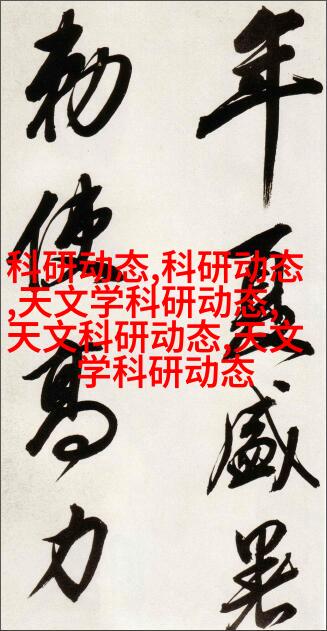 年夏盛暑
勅使高力
科研动态,科研动态
,天文学科研动态,
天文科研动态,天文
学科研动态